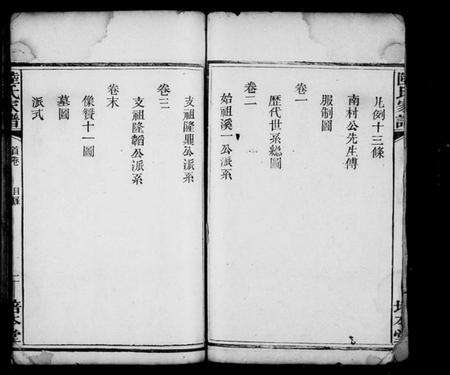 凡例十三條
南村公先生傳
服制圖
卷一
歷代世系總圖
卷二
始祖溪一公派系
卷三
支祖隆興公派系
支祖隆韜公派系
卷末
像贊十一圖
墓圖
派式
陸氏家譜
首卷
目錄
培本堂